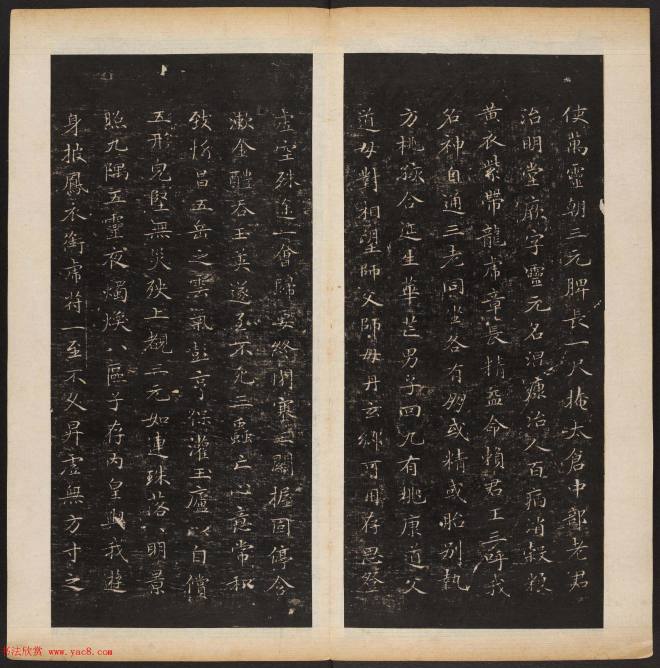 使萬靈朝三元脾長一尺掩太倉中部老君
治明堂厥字靈元名混康治人百病消穀糧
黃衣紫帶龍虎章長精益命賴君王三呼我
名神自通三老同坐各有朋或精或胎別執
方桃孩合延生華芒男子回九有桃康道父
道母對相望師父師母丹玄鄉可用存思登
虛空殊途一會歸要終閉塞三關握固停含
漱金醴吞玉英遂至不死三蟲亡心意常和
致欣昌五岳之雲氣彭亨保灌玉廬以自償
五形完堅無災殃上觀三元如連珠落落明景
照九隅五靈夜燭煥八區子存內皇與我遊
身披鳳衣銜虎符一至不久昇虛無方寸之
书法欣赏 www.yac8.com